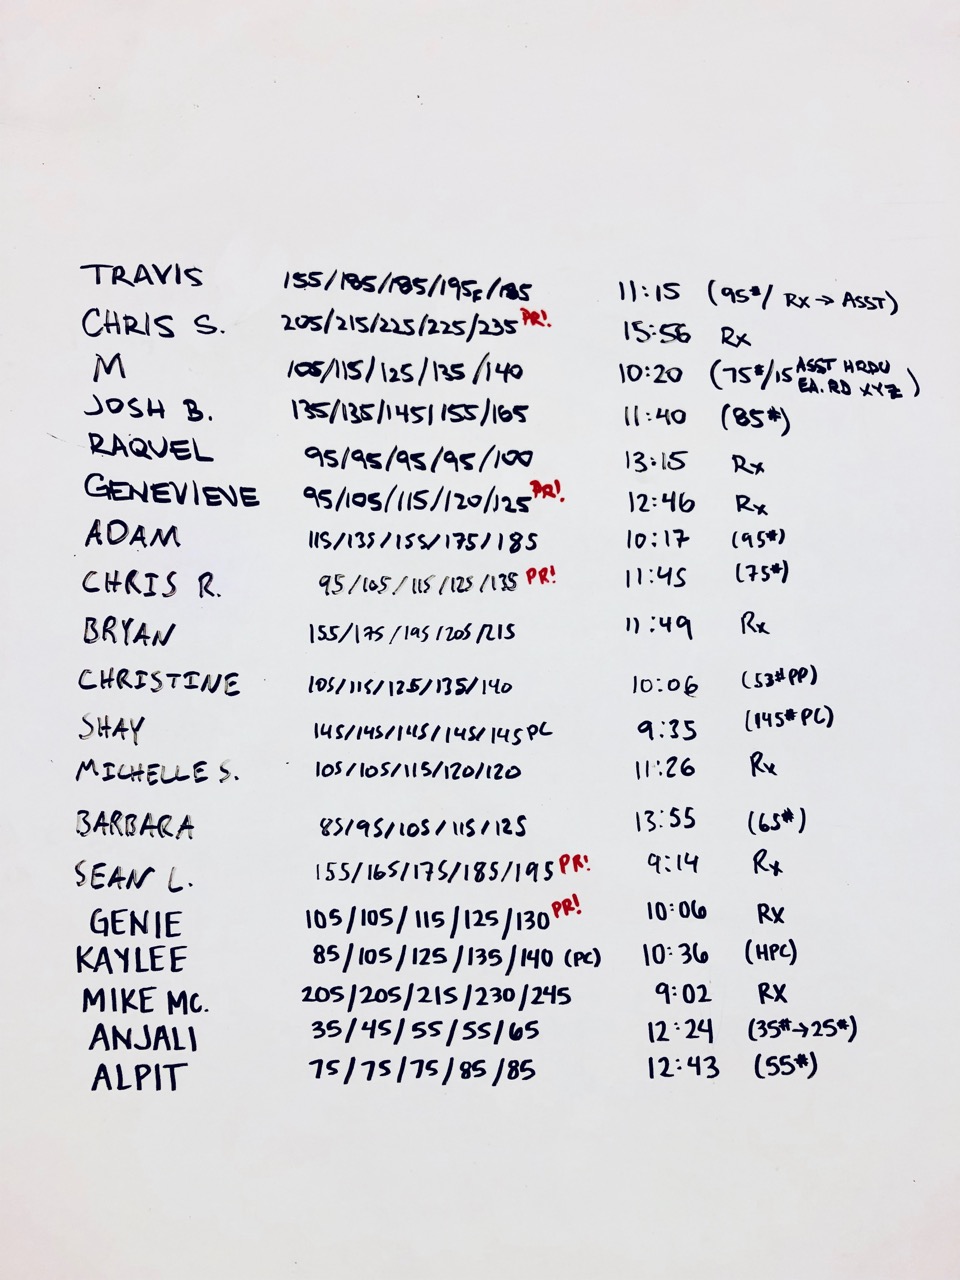 TRAVIS 155/185/185/195F/185 11:15 (95#/ Rx → ASST)
CHRIS S. 205/215/225/225/235 PR! 15:56 Rx
M 105/115/125/135/140 10:20 (75#/15 ASST HRDU EA. RD XYZ)
JOSH B. 135/135/145/155/165 11:40 (85#)
RAQUEL 95/95/95/95/100 13:15 Rx
GENEVIEVE 95/105/115/120/125 PR! 12:46 Rx
ADAM 115/135/155/175/185 10:17 (95#)
CHRIS R. 95/105/115/125/135 PR! 11:45 (75#)
BRYAN 155/175/195/205/215 11:49 Rx
CHRISTINE 105/115/125/135/140 10:06 (53# PP)
SHAY 145/145/145/145/145 PC 9:35 (145# PC)
MICHELLE S. 105/105/115/120/120 11:26 Rx
BARBARA 85/95/105/115/125 13:55 (65#)
SEAN L. 155/165/175/185/195 PR! 9:14 Rx
GENIE 105/105/115/125/130 PR! 10:06 RX
KAYLEE 85/105/125/135/140 (PC) 10:36 (HPC)
MIKE MC. 205/205/215/230/245 9:02 RX
ANJALI 35/45/55/55/65 12:24 (35#→25#)
ALPIT 75/75/75/85/85 12:43 (55#)